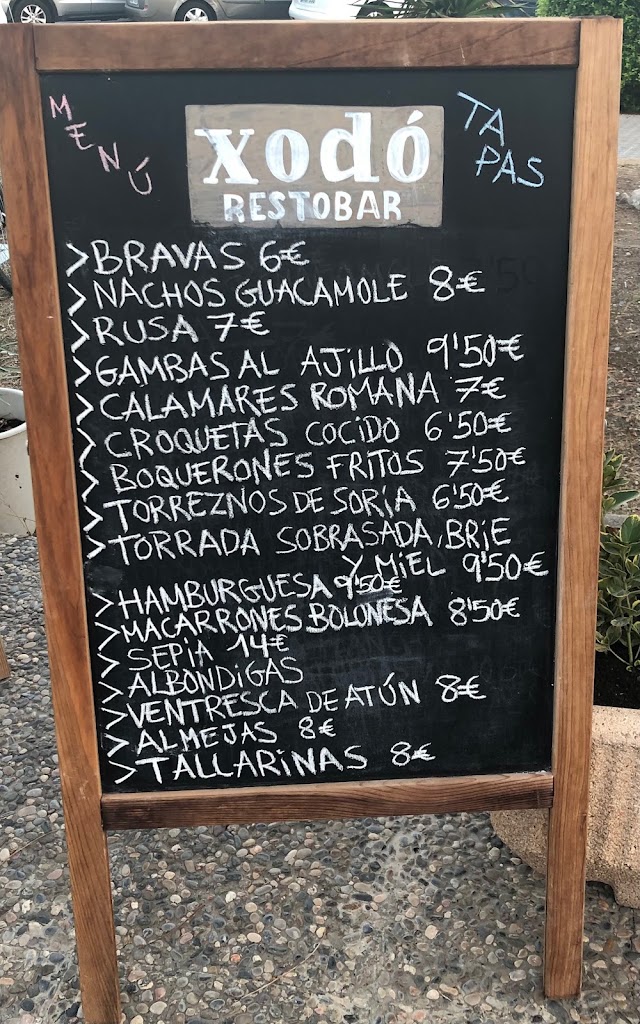 MENÚ
xodó
RESTOBAR
TAPAS
>BRAVAS 6€
>NACHOS GUACAMOLE 8€
>RUSA 7€
>GAMBAS AL AJILLO 9'50€
>CALAMARES ROMANA 7€
>CROQUETAS COCIDO 6'50€
>BOQUERONES FRITOS 7'50€
>TORREZNOS DE SORIA 6'50€
>TORRADA SOBRASADA, BRIE
Y MIEL 9'50€
>HAMBURGUESA 9'50€
>MACARRONES BOLONESA 8'50€
>SEPIA 14€
>ALBONDIGAS
>VENTRESCA DE ATÚN 8€
>ALMEJAS 8€
>TALLARINAS 8€